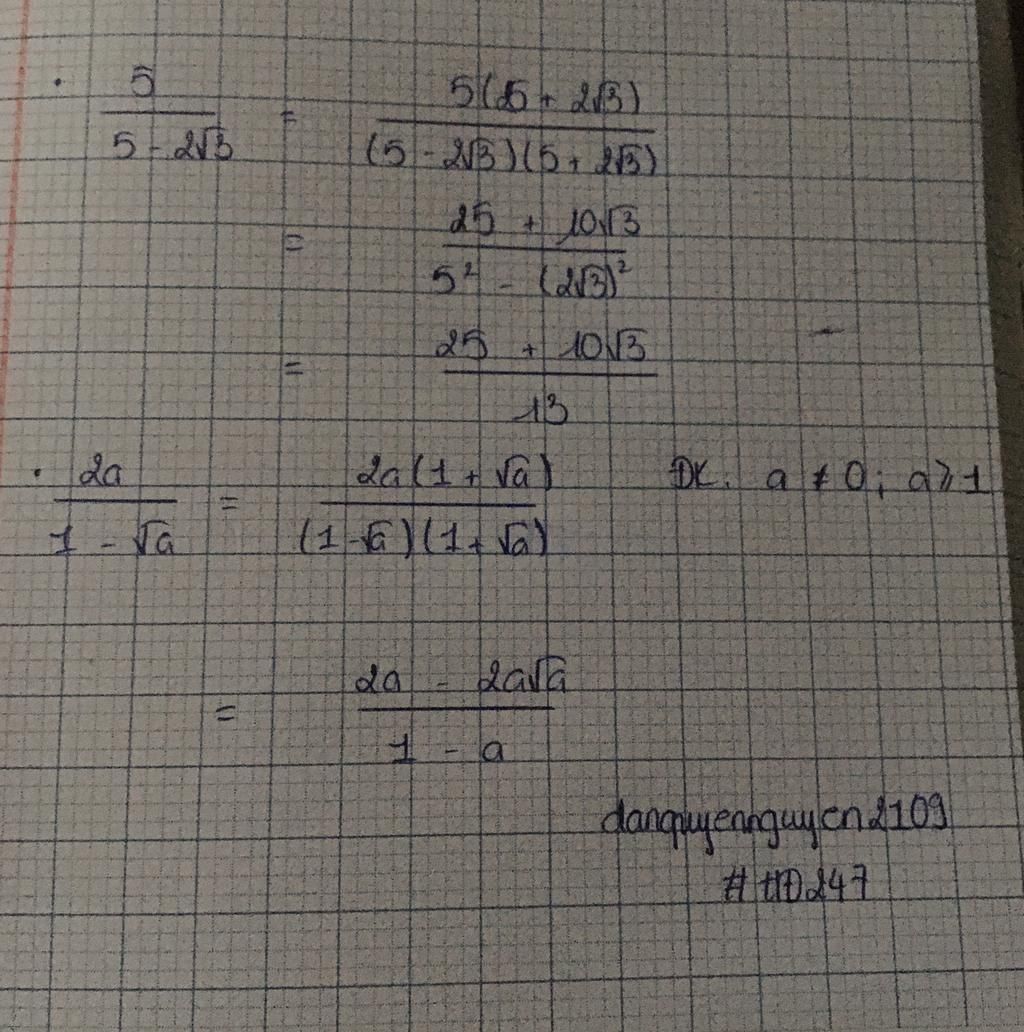 · 5/(5 - 2√3) = 5(5 + 2√3)/((5 - 2√3)(5 + 2√3))
= (25 + 10√3)/(5² - (2√3)²)
= (25 + 10√3)/13
· 2a/(1 - √a) = 2a(1 + √a)/((1 - √a)(1 + √a)) ĐK: a ≠ 0; a ≥ 1
= (2a - 2a√a)/(1 - a)
danquyennguyen2109
# HĐ247